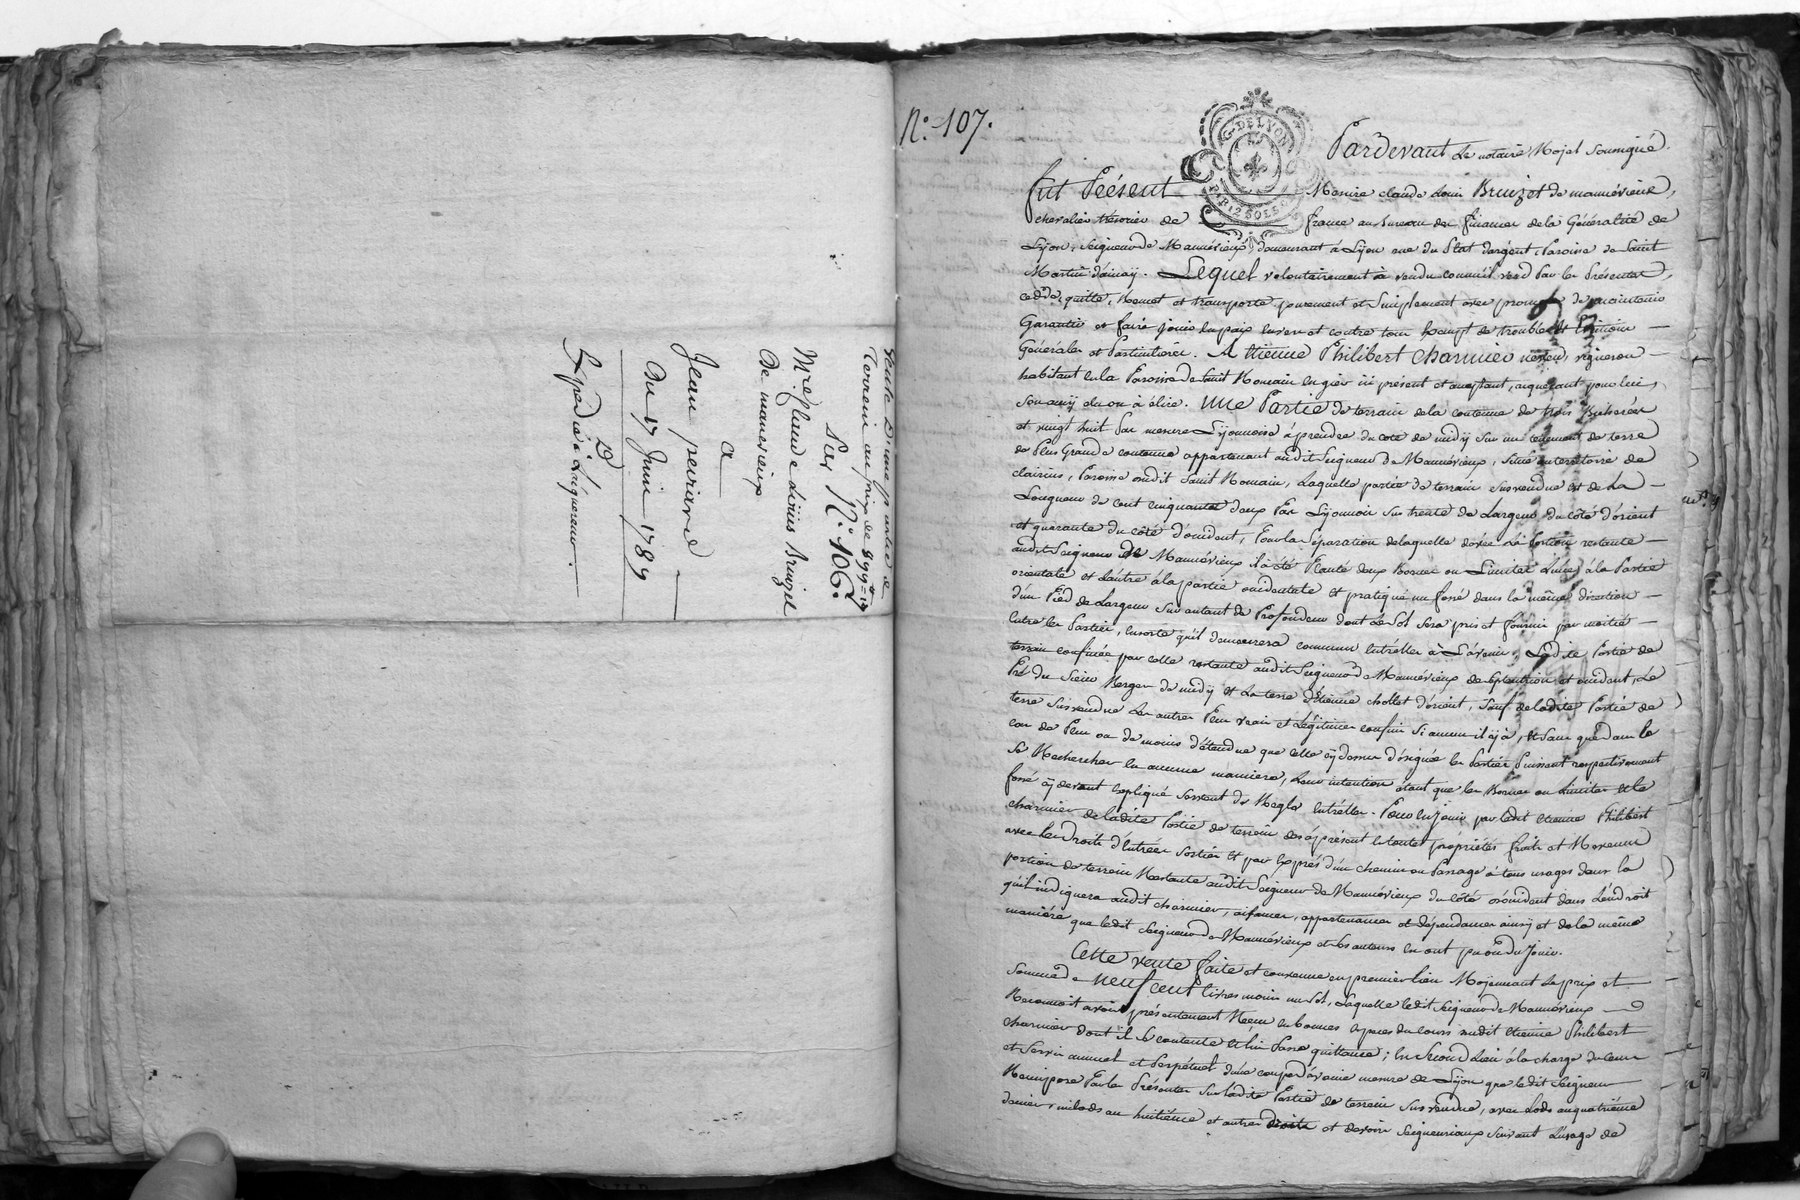 Vente D'une partie de
Terrein au prix de 899ᵗᵗ 19
Sur N.º 106.
Mre Claude Louis Bruizet
De mannevieux
a
Jean perrare
Du 17 Juin 1789
Expédiée à L'acquereur.
N.º 107.
G. DE LYON
Pardevant Le notaire Royal soussigné.
fut Présent Messire claude Louis Bruizet de mannévieux,
chevalier trésorier de france au bureau des finances de la Généralité de
Lyon, seigneur de Mannévieux demeurant à Lyon rue du Plat d'argent Paroisse de Saint
Martin d'ainay. Lequel volontairement à vendu comme il vend Par les Présentes,
cedde, quitte, Remet et transporte purement et simplement avec promesse de maintenir
Garantir et faire jouir en paix envers et contre tous Exempt de troubles et Evictions
Générales et Particulieres. A Etienne Philibert Charmier vigneron
habitant en la Paroisse de Saint Romain en gier ici présent et acceptant, acquerant pour lui,
son amy élu ou à élire. Une Partie de terrain de la contenue de trois Bicherées
et vingt huit Pas mesure Lyonnoise à prendre du coté de midy sur un tenement de terre
de Plus Grande contenue appartenant audit Seigneur de Mannévieux, situé au territoire de
clairins, Paroisse dudit Saint Romain, Laquelle partie de terrain susvendue est de La
Longueur de cent cinquante deux Pas Lyonnois sur trente de Largeur du côté d'orient
et quarante du côté d'occident, Pour la séparation de laquelle d'avec La Portion restante
audit Seigneur de Mannévieux il à été Planté deux Bornes ou Limites L'une à la Partie
orientale et L'autre à la partie occidentale et pratiqué un fossé dans la même direction
d'un Pied de Largeur sur autant de Profondeur dont Le Sol sera pris et fourni par moitié
entre les Parties, ensorte qu'il demeurera commun entr'elles à L'avenir, Ladite Partie de
terrain confinée par celle restante audit Seigneur de Mannévieux de Septentrion et occident, Le
Pré du Sieur Merger de midy et La terre d'Etienne chollet d'orient, sauf de ladite Partie de
terre susvendue Les autres Plus vrais et Légitimes confins si aucun il y à, et sans que dans le
cas de Plus ou de moins d'étendue que celle cy dessus désignée les Parties Puissent respectivement
se Rechercher en aucune maniere, Leur intention étant que les Bornes ou Limites et le
fossé cy devant Expliqué servent de Regle entr'elles. Pour en jouir par ledit Etienne Philibert
charmier de ladite Partie de terrein des à présent en toutes propriétés fruits et Revenus
avec les Droits d'Entrées Sorties et par Exprès d'un chemin ou Passage à tous usages dans la
portion de terrein Restante audit Seigneur de Mannévieux du côté d'occident dans L'endroit
qu'il indiquera audit charmier, aisances, appartenances et dépendances ainsy et de la même
maniére que ledit Seigneur de Mannévieux et ses auteurs en ont pu ou du Jouir.
Cette vente faite et convenue en premier lieu Moyennant Le prix et
Somme de neuf cent livres moins un sol, Laquelle ledit Seigneur de Mannévieux
Reconnoit avoir présentement Reçue en bonnes especes du cours dudit Etienne Philibert
charmier dont il se contente et lui Passe quittance; en Second Lieu à la charge du cens
et servis annuel et Perpétuel d'une coupe d'avoine mesure de Lyon que ledit Seigneur
Reimpose Par les Présentes sur ladite Partie de terrein susvendue, avec Lods au quatrième
denier, milods au huitième et autres droits et devoirs seigneuriaux suivant L'usage de